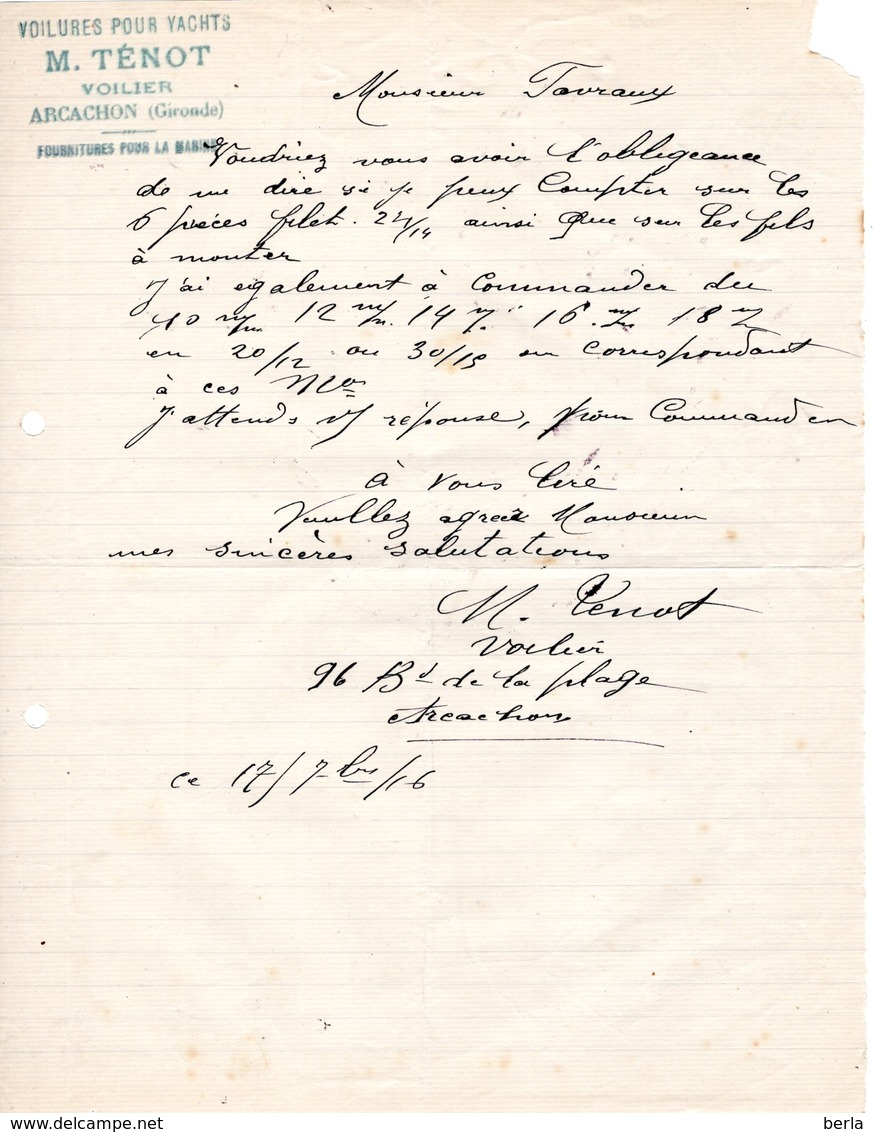 VOILURES POUR YACHTS
M. TÉNOT
VOILIER
ARCACHON (Gironde)
FOURNITURES POUR LA MARINE
Monsieur Tavraux
Voudriez vous avoir l'obligeance
de me dire si je peux Compter sur les
6 pièces filet. 24/14 ainsi que sur les fils
à monter
J'ai également à Commander du
10 m/m 12 m/m. 14 16 18
en 20/12 ou 30/15 en correspondant
à ces Nos
J'attends réponse, pour Commander
à vous lire
Veuillez agréez Monsieur
mes sincères salutations
M. Tenot
Voilier
96 Bd de la plage
Arcachon
ce 17/7bre/16
berla